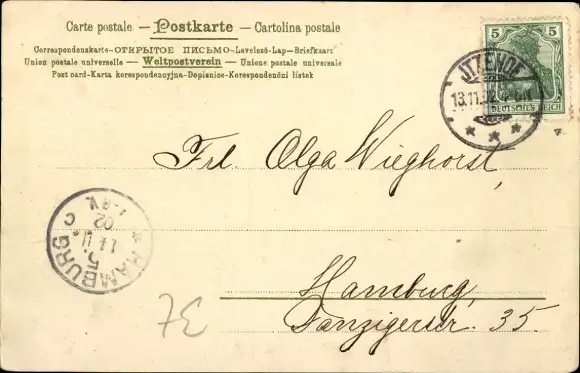 Carte postale — Postkarte — Cartolina postale
Correspondenzkarte-ОТКРЫТОЕ ПИСЬМО-Levelező-Lap-Briefkaart
Union postale universelle — Weltpostverein — Unione postale universale
Post card-Karta korespondencyjna-Dopisnice-Korespondenční lístek
5 5
DEUTSCHES REICH
ITZEHOE
13.11.02
Frl. Olga Wieghorst,
HAMBURG
5
02
C
Hamburg,
Danzigerstr. 35.
7E